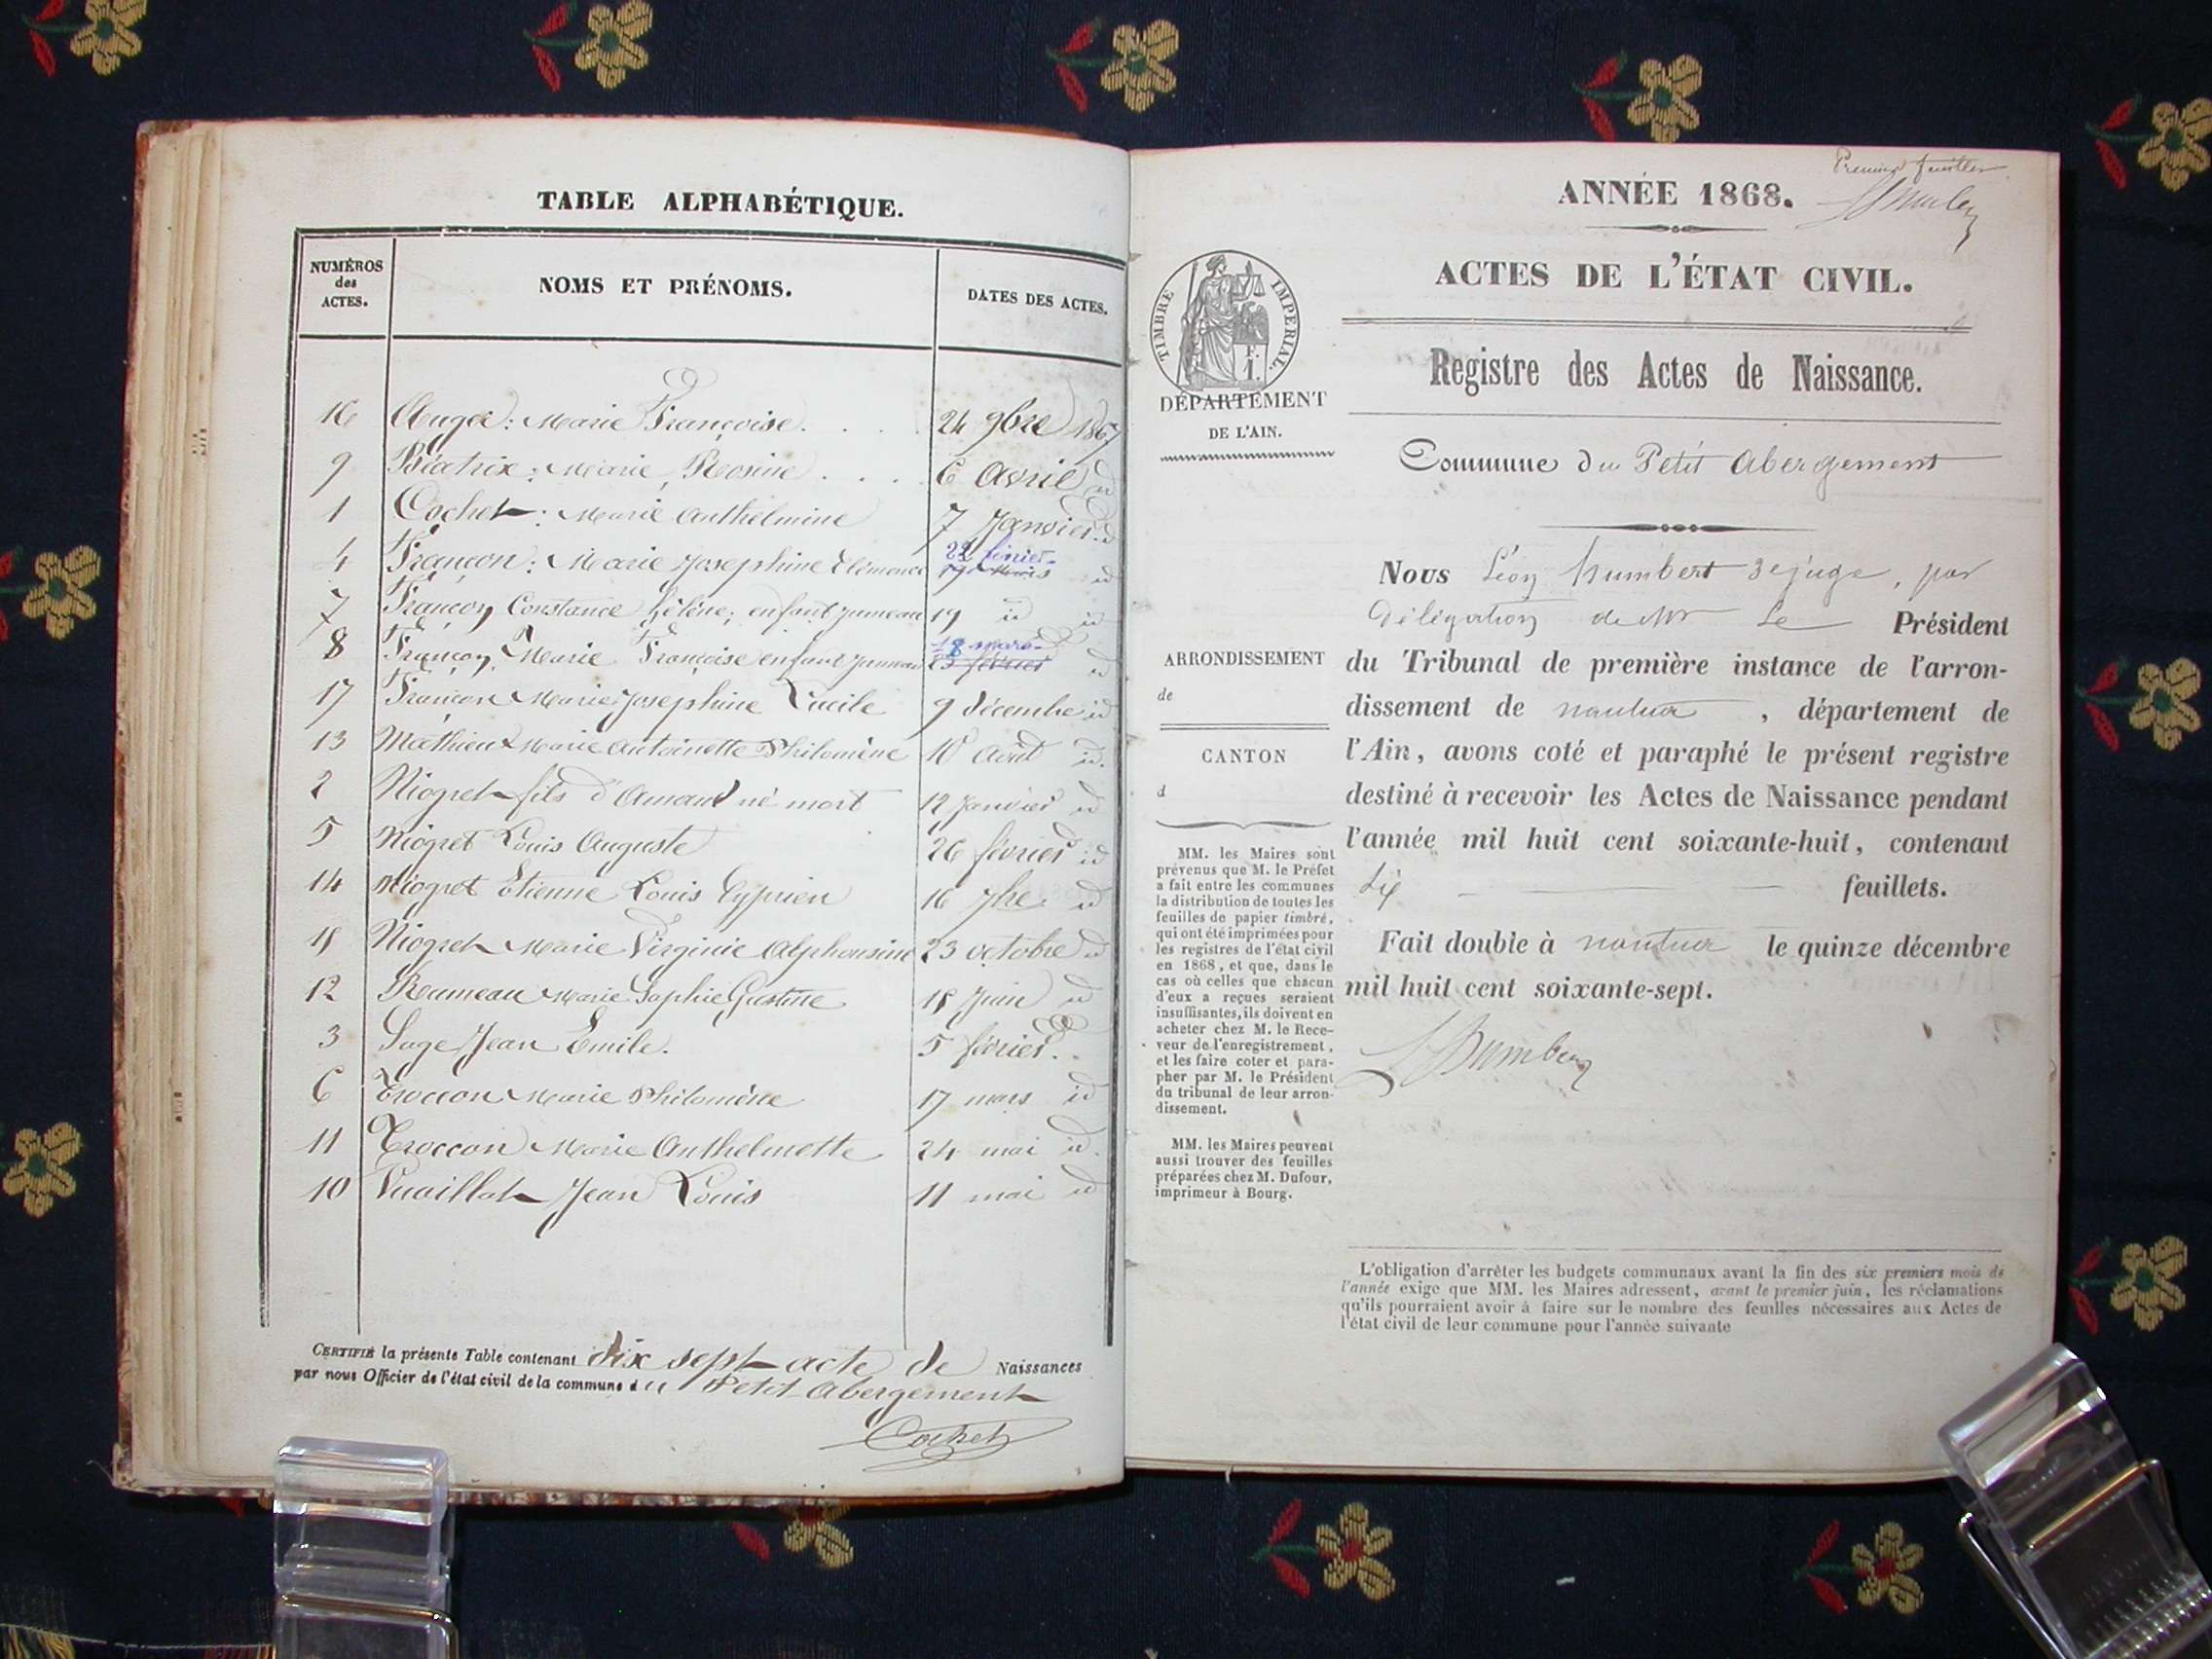 TABLE ALPHABÉTIQUE.
NUMÉROS des ACTES.
NOMS ET PRÉNOMS.
DATES DES ACTES.
16 Auger: Marie Françoise. 24 9bre 1867
9 Béatrix: Marie, Rosine 6 avril id
1 Cochet: Marie Anthelmine 7 Janvier id
4 Françon: Marie Josephine Clémence 22 février 19 Mars id
7 Françon Constance hélène; enfant jumeau 19 id id
8 Françon, Marie Françoise enfant jumeau 18 mars 23 février id
17 Françon Marie Josephine Lucile 9 décembre id
13 Mathieu Marie Antoinette Philomène 10 Août id.
2 Niogret fils d'Amand né mort 12 Janvier id
5 Niogret Louis Auguste 26 février id
14 Niogret Etienne Louis Cyprien 16 7bre id
15 Niogret Marie Virginie Alphonsine 23 octobre id
12 Rameau Marie Sophie Justine 15 Juin id
3 Sage Jean Emile. 5 février.
6 Troccon Marie Philomène 17 mars id
11 Troccon Marie Anthelmette 24 mai id.
10 Vuaillat Jean Louis 11 mai id
CERTIFIÉ la présente Table contenant dix sept acte de Naissances
par nous Officier de l'état civil de la commune du Petit Abergement
Cochet
Premier feuillet
ANNÉE 1868.
ACTES DE L'ÉTAT CIVIL.
TIMBRE IMPERIAL.
Registre des Actes de Naissance.
DÉPARTEMENT
DE L'AIN.
Commune du Petit Abergement
Nous Léon humbert 3e juge, par
Délégation de Mr Le Président
ARRONDISSEMENT
de
CANTON
d
du Tribunal de première instance de l'arron-
dissement de nantua, département de
l'Ain, avons coté et paraphé le présent registre
destiné à recevoir les Actes de Naissance pendant
l'année mil huit cent soixante-huit, contenant
Six feuillets.
Fait double à nantua le quinze décembre
mil huit cent soixante-sept.
LHumbert
MM. les Maires sont
prévenus que M. le Préfet
a fait entre les communes
la distribution de toutes les
feuilles de papier timbré,
qui ont été imprimées pour
les registres de l'état civil
en 1868, et que, dans le
cas où celles que chacun
d'eux a reçues seraient
insuffisantes, ils doivent en
acheter chez M. le Rece-
veur de l'enregistrement,
et les faire coter et para-
pher par M. le Président
du tribunal de leur arron-
dissement.
MM. les Maires peuvent
aussi trouver des feuilles
préparées chez M. Dufour,
imprimeur à Bourg.
L'obligation d'arrêter les budgets communaux avant la fin des six premiers mois de
l'année exige que MM. les Maires adressent, avant le premier juin, les réclamations
qu'ils pourraient avoir à faire sur le nombre des feuilles nécessaires aux Actes de
l'état civil de leur commune pour l'année suivante